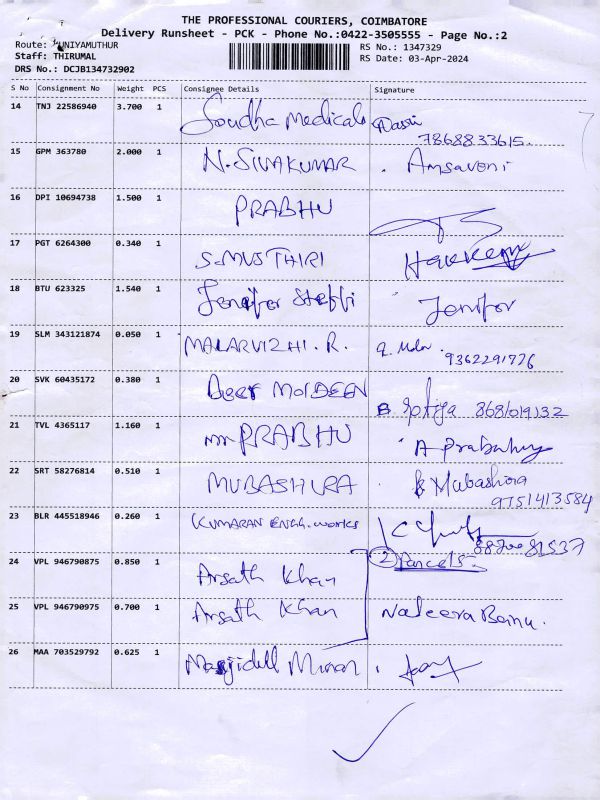 THE PROFESSIONAL COURIERS, COIMBATORE
Delivery Runsheet - PCK - Phone No.:0422-3505555 - Page No.:2
Route: KUNIYAMUTHUR
RS No.: 1347329
Staff: THIRUMAL
RS Date: 03-Apr-2024
DRS No.: DCJB134732902
S No Consignment No Weight PCS Consignee Details Signature
14 TNJ 22586940 3.700 1 Soudha Medicals
7868833615.
15 GPM 363780 2.000 1 N.SIVAKUMAR . Amsaveni
16 DPI 10694738 1.500 1 PRABHU
17 PGT 6264300 0.340 1 S.MUSTHIRI Hakkeem
18 BTU 623325 1.540 1 Jenifer Steffi Jenifer
19 SLM 343121874 0.050 1 MALARVIZHI. R.
9362291776
20 SVK 60435172 0.380 1 Beer MOIDEEN
21 TVL 4365117 1.160 1 Mr PRABHU A Prabahu
22 SRT 58276814 0.510 1 MUBASHIRA Mubashira
9751413584
23 BLR 445518946 0.260 1 KUMARAN ENGG. works
24 VPL 946790875 0.850 1 Arsath Khan 2 Parcels.
25 VPL 946790975 0.700 1 Arsath Khan Nadeera Banu.
26 MAA 703529792 0.625 1